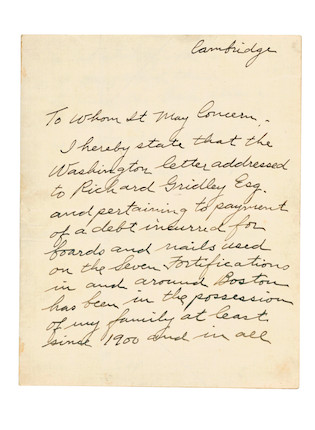 Cambridge
To Whom It May Concern.
I hereby state that the
Washington letter addressed
to Richard Gridley Esq.
and pertaining to payment
of a debt incurred for
boards and nails used
on the Seven Fortifications
in and around Boston
has been in the possession
of my family at least
since 1900 and in all